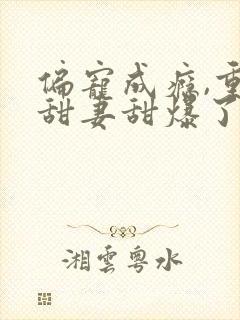 偏寵成癮,重
甜妻甜爆了
湘雲粵水